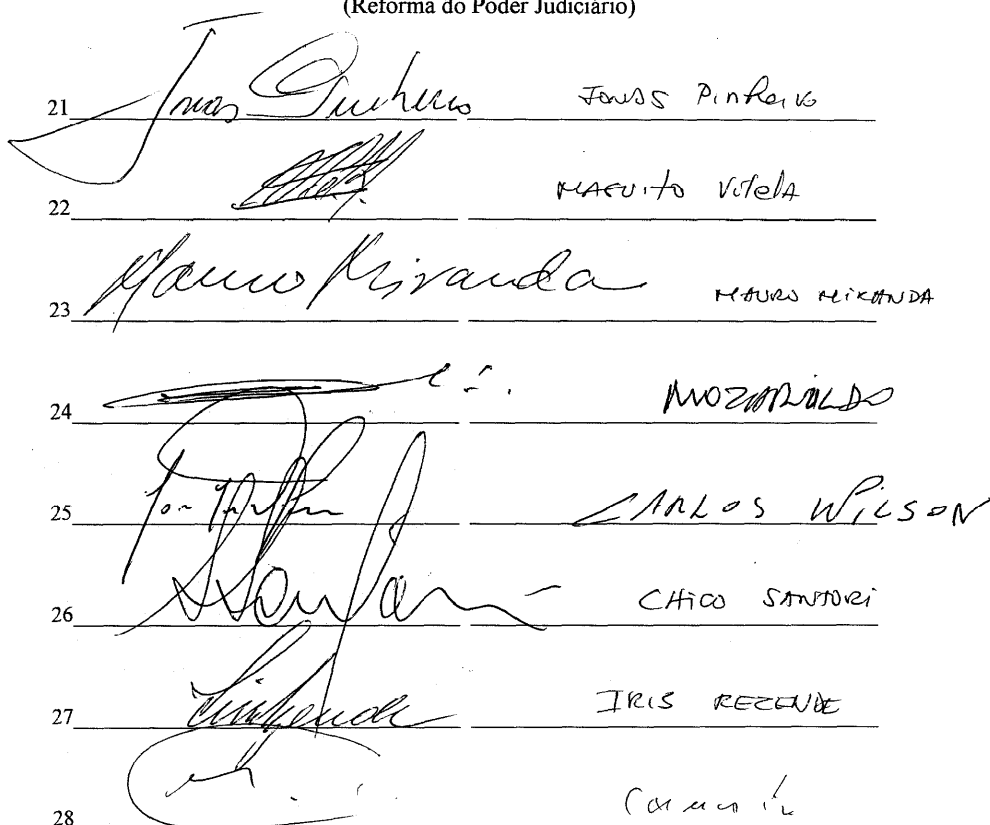 (Reforma do Poder Judiciário)
21 Jonas Pinheiro JONAS PINHEIRO
22 MAGUITO VILELA
23 Mauro Miranda MAURO MIRANDA
24 MOZARILDO
25 CARLOS WILSON
26 CHICO SARTORI
27 IRIS REZENDE
28